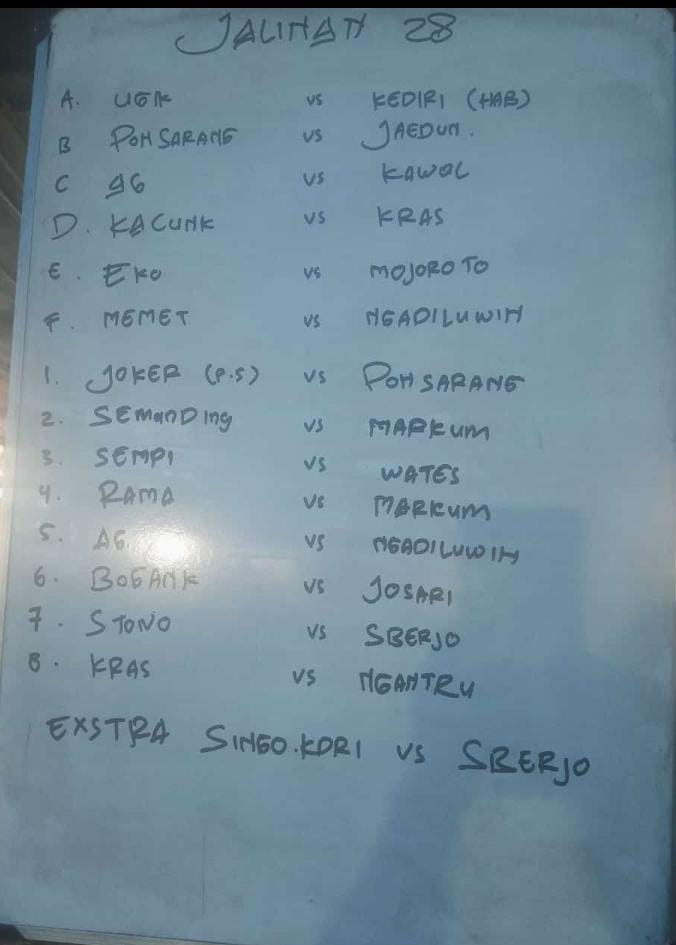 JALINAN 28
A. UGIK vs KEDIRI (HAB)
B POHSARANG vs JAEDUN.
C AG vs KAWOL
D. KACUNK vs KRAS
E. EKO vs MOJOROTO
F. MEMET vs NGADILUWIH
1. JOKER (P.S) vs POHSARANG
2. SEMANDING vs MARKUM
3. SEMPI vs WATES
4. RAMA vs MARKUM
5. AG. vs NGADILUWIH
6. BOGANK vs JOSARI
7. STONO vs SBERJO
8. KRAS vs NGANTRU
EXSTRA SINGO.KDRI vs SBERJO